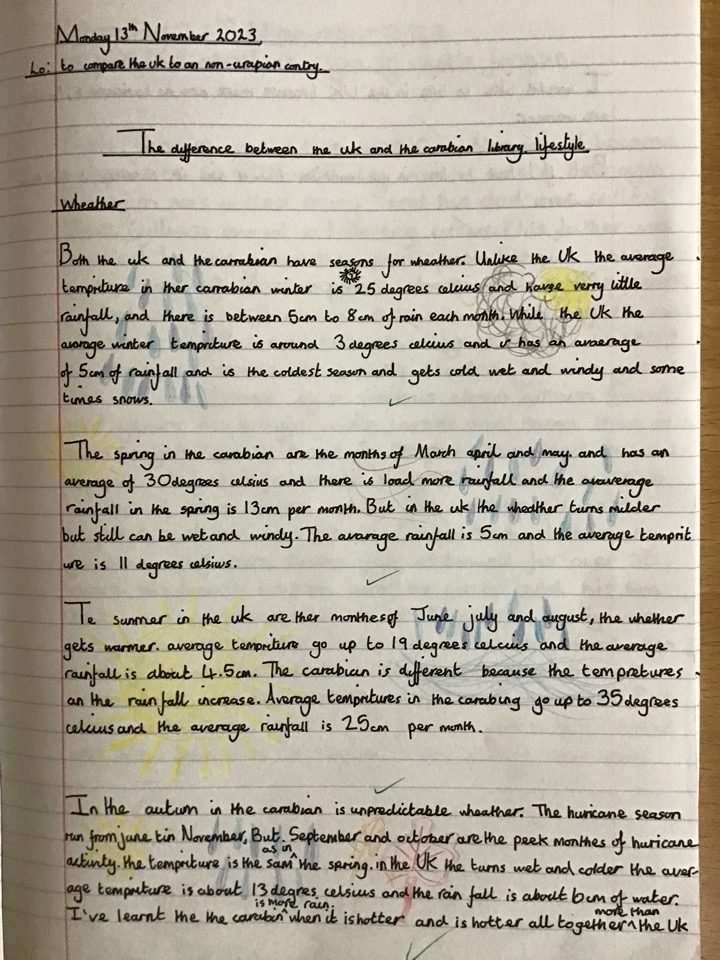 Monday 13th November 2023
Lo: to compare the uk to an non-urapian contry.
The difference between the uk and the carabian library lifestyle
Wheather
Both the uk and the carrabian have seasons for wheather. Unlike the UK the average
tempriture in ther carrabian winter is 25 degrees celcius and havge verry little
rainfall, and there is between 5cm to 8cm of rain each month. While the UK the
avarage winter temprture is around 3 degrees celcius and has an avaerage
of 5cm of rainfall and is the coldest season and gets cold wet and windy and some
times snows.
The spring in the carabian are the months of March april and may. and has an
average of 30 degrees celsius and there is load more rainfall and the avaverage
rainfall in the spring is 13cm per month. But in the uk the wheather turns milder
but still can be wet and windy. The avarage rainfall is 5cm and the average temprit
ure is 11 degrees celsius.
Te summer in the uk are ther monthes of June july and august, the whether
gets warmer. average tempriture go up to 19 degrees celcius and the average
rainfall is about 4.5cm. The carabian is different because the tempretures
an the rainfall increase. Average tempritures in the carabing go up to 35 degrees
celcius and the average rainfall is 25cm per month.
In the autum in the carabian is unpredictable wheather. The huricane season
run from june tin November, But. September and october are the peek monthes of huricane
activity. the tempriture is the sam as in the spring. in the UK the turns wet and colder the aver-
age tempriture is about 13 degres celsius and the rain fall is about 6cm of water.
I've learnt the the carabin is more rain. when it is hotter and is hotter all together more than the Uk